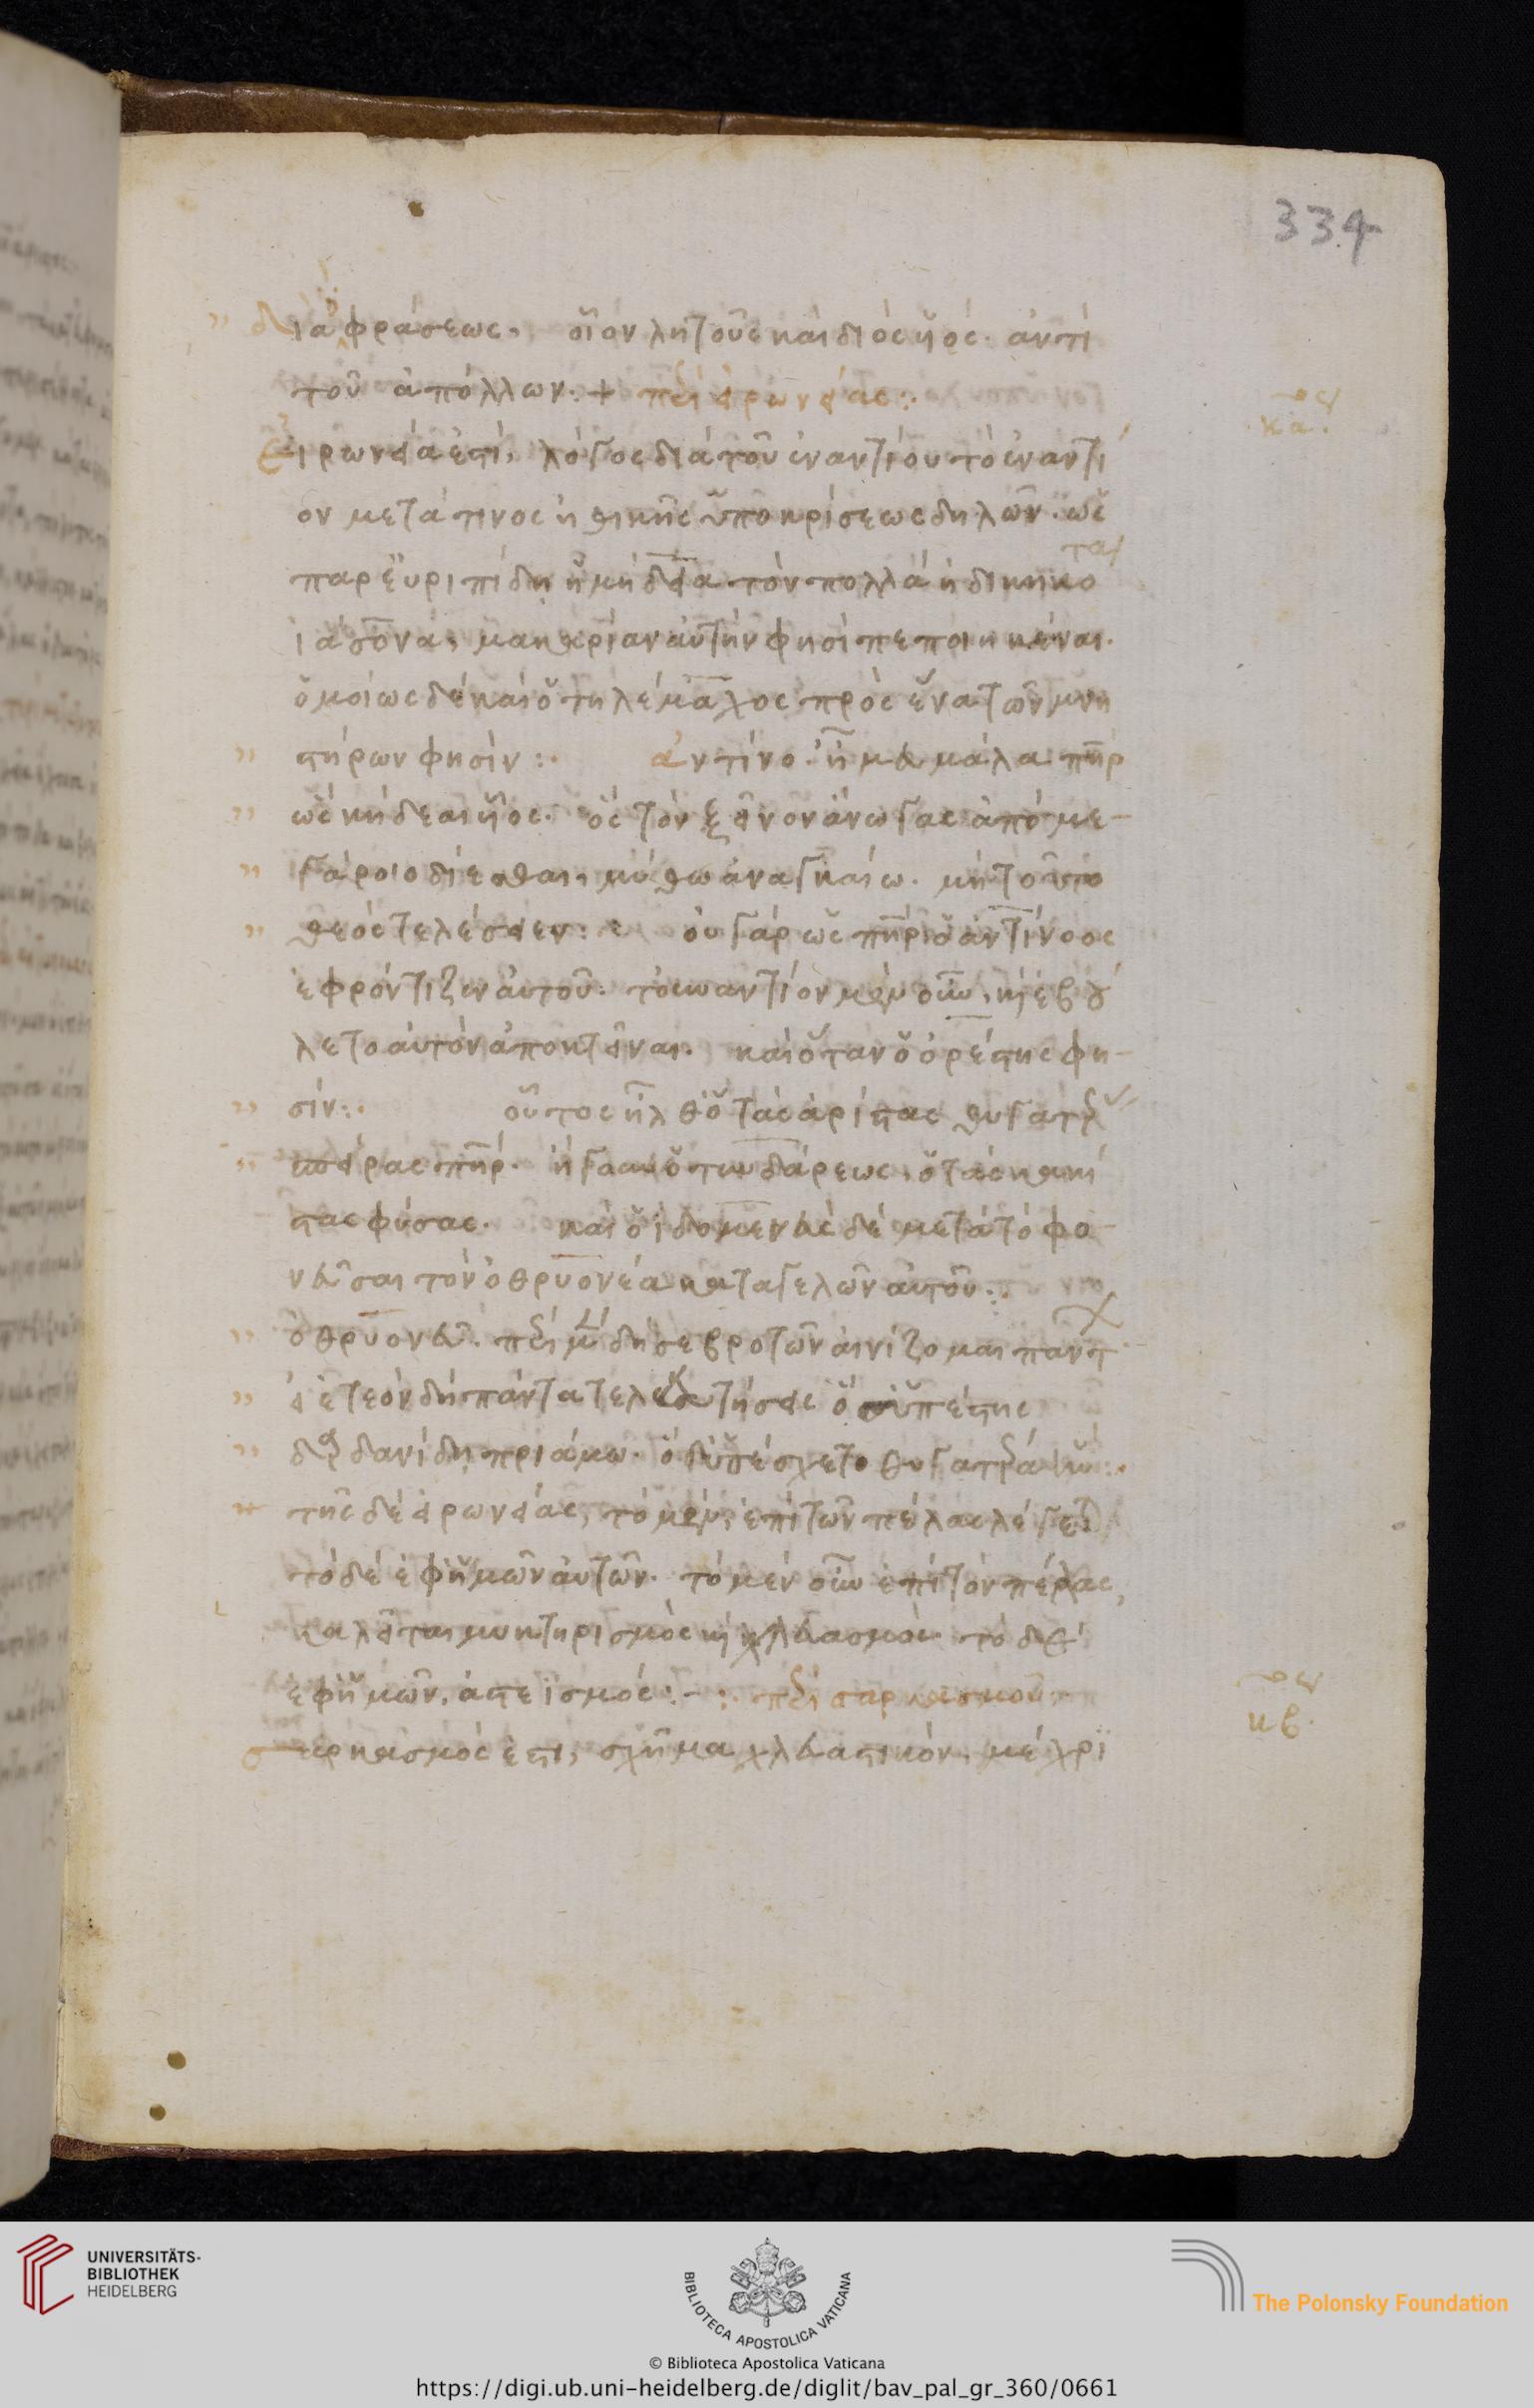 334
διαφράσεως. οἷον λητοῦς καὶ διὸς ὑ̈ός. ἀντὶ
τοῦ ἀπόλλων: + περὶ εἰρωνείας:
κα.
Εἰρωνεία ἐστὶ, λόγος διὰ τοῦ ἐναντίου τὸ ἐναντί
ον μετά τινος ἠθικῆς ὑποκρίσεως δηλῶν. ὡς
παρ εὐριπίδῃ ἡ μήδεια τὸν πολλὰ ἠδικηκότα
ἰάσονα, μακαρίαν αὐτήν φησὶ πεποιηκέναι.
ὁμοίως δὲ καὶ ὁ τηλέμαχος πρὸς ἕνα τῶν μνη
στήρων φησίν: ἀντίνο. ἦ μευ μάλα πὴρ
ὣς κήδεαι υἷος. ὃς τὸν ξεῖνον ἄνωγας ἀπὸ με-
γάροιο δίεσθαι, μύθω ἀναγκαίω. μὴ τοῦτο
θεὸς τελέσειεν: οὐ γὰρ ὡς πὴρ ὁ ἀντίνοος
ἐφρόντιζεν αὐτοῦ. τοὐναντίον μὲν οὖν, καὶ ἐβού
λετο αὐτὸν ἀποκτεῖναι. καὶ ὅταν ὁ ὀρέστης φη-
σίν: οὗτος ἦλθ ὁ τὰς ἀρίστας θυγατέρας
σπείρας πὴρ. ἤγουν ὁ τυνδάρεως, ὁ τὰς κακί
στας φύσας. καὶ ὁ ἰδομενεὺς δὲ μετὰ τὸ φο
νεῦσαι τὸν ὀθρυονέα καταγελῶν αὐτοῦ:
ὀθρυονεῦ. περὶ μὲν δή σε βροτῶν αἰνίζομαι πάντων
εἰ ἐτεὸν δὴ πάντα τελευτήσεις ὅσ ὑπέστης
δαρδανίδῃ πριάμω. ὁ δ ὑπέσχετο θυγατέρα ἥν:
τῆς δὲ εἰρωνείας, τὸ μὲν, ἐπὶ τῶν πέλας λέγεται
τὸ δὲ ἐφ ἡμῶν αὐτῶν. τὸ μὲν οὖν ἐπὶ τὸν πέλας,
καλεῖται μυκτηρισμὸς καὶ χλευασμός. τὸ δὲ
ἐφ ἡμῶν, ἀστεϊσμός: - : περὶ σαρκασμοῦ
κβ.
σαρκασμός ἐστι, σχῆμα χλευαστικόν. μέχρι
UNIVERSITÄTS-
BIBLIOTHEK
HEIDELBERG
BIBLIOTECA APOSTOLICA VATICANA
The Polonsky Foundation
© Biblioteca Apostolica Vaticana
https://digi.ub.uni-heidelberg.de/diglit/bav_pal_gr_360/0661